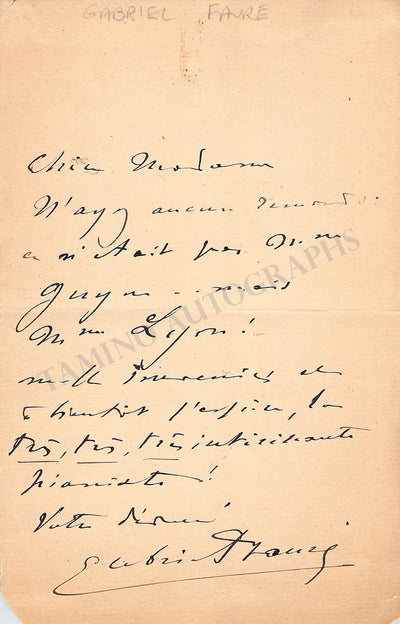 GABRIEL FAURE
Chère Madame
N'ayez aucun remords :
ce n'était pas Mme
Guyon - mais
Mme Lyon !
Mille souvenirs et
à bientôt j'espère, la
très, très, très intéressante
pianiste !
Votre dévoué
Gabriel Fauré
TAMINO AUTOGRAPHS